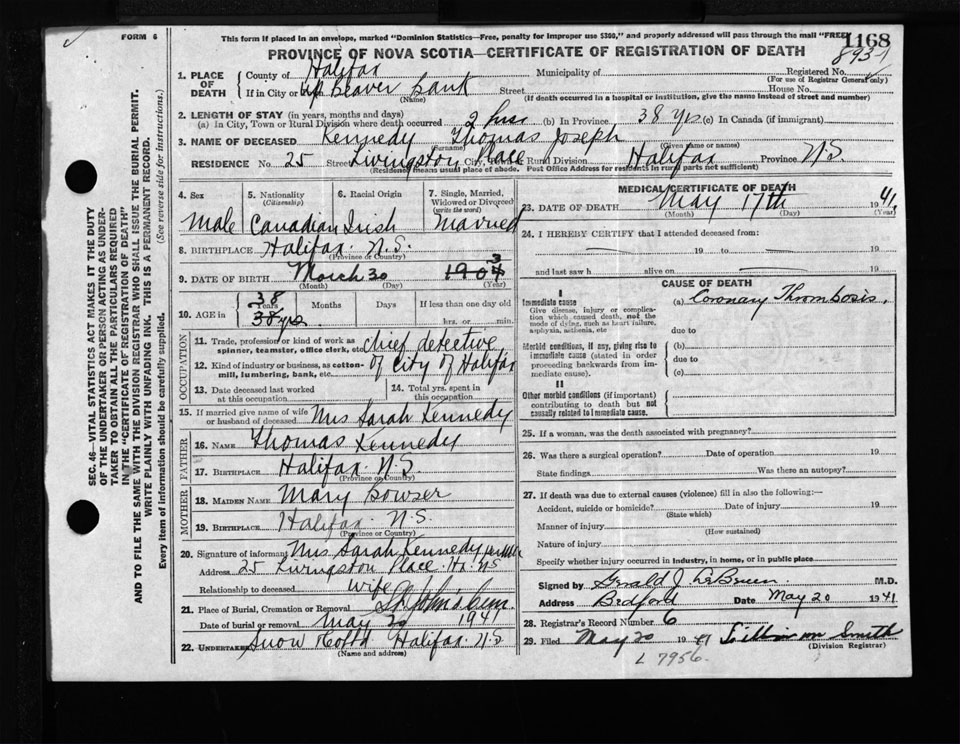 FORM 6
This form if placed in an envelope, marked "Dominion Statistics—Free, penalty for improper use $300," and properly addressed will pass through the mail "FREE
1168
PROVINCE OF NOVA SCOTIA—CERTIFICATE OF REGISTRATION OF DEATH
893
1. PLACE OF DEATH
County of Halifax Municipality of Registered No.
(For use of Registrar General only)
If in City or Beaver Bank Street House No.
(Name) (If death occurred in a hospital or institution, give the name instead of street and number)
2. LENGTH OF STAY (in years, months and days)
(a) In City, Town or Rural Division where death occurred 2 hrs (b) In Province 38 yrs (c) In Canada (if immigrant)
3. NAME OF DECEASED Kennedy Thomas Joseph
(Surname) (Given name or names)
RESIDENCE No. 25 Street Livingston Place City, Town or Rural Division Halifax Province N.S.
(Residency means usual place of abode. Post Office Address for residents in rural parts not sufficient)
4. Sex
Male
5. Nationality
(Citizenship)
Canadian
6. Racial Origin
Irish
7. Single, Married, Widowed or Divorced
(write the word)
Married
8. BIRTHPLACE Halifax N.S.
(Province or Country)
9. DATE OF BIRTH March 30 1904 3
(Month) (Day) (Year)
10. AGE in
38
Years Months Days If less than one day old
38 yrs. hrs. or min.
OCCUPATION
11. Trade, profession or kind of work as spinner, teamster, office clerk, etc. chief detective
12. Kind of industry or business, as cotton-mill, lumbering, bank, etc. of City of Halifax
13. Date deceased last worked at this occupation
14. Total yrs. spent in this occupation
15. If married give name of wife or husband of deceased Mrs Sarah Kennedy
FATHER
16. NAME Thomas Kennedy
17. BIRTHPLACE Halifax N.S.
(Province or Country)
MOTHER
18. MAIDEN NAME Mary Bowser
19. BIRTHPLACE Halifax N.S.
(Province or Country)
20. Signature of informant Mrs Sarah Kennedy
Address 25 Livingston Place Hx NS
Relationship to deceased wife
21. Place of Burial, Cremation or Removal St John's Cem.
Date of burial or removal May 20 1941
22. UNDERTAKER Snow & Co Ltd Halifax N.S.
(Name and address)
MEDICAL CERTIFICATE OF DEATH
23. DATE OF DEATH May 17th 1941
(Month) (Day) (Year)
24. I HEREBY CERTIFY that I attended deceased from:
19 to 19
and last saw h alive on 19
CAUSE OF DEATH
I
Immediate cause
Give disease, injury or complication which caused death, not the mode of dying, such as heart failure, asphyxia, asthenia, etc
(a) Coronary Thrombosis
due to
Morbid conditions, if any, giving rise to immediate cause (stated in order proceeding backwards from immediate cause).
(b)
due to
(c)
II
Other morbid conditions (if important) contributing to death but not causally related to immediate cause.
25. If a woman, was the death associated with pregnancy?
26. Was there a surgical operation? Date of operation 19
State findings Was there an autopsy?
27. If death was due to external causes (violence) fill in also the following:—
Accident, suicide or homicide? Date of injury 19
(State which)
Manner of injury
(How sustained)
Nature of injury
Specify whether injury occurred in industry, in home, or in public place
Signed by Gerald J. LeBrun M.D.
Address Bedford Date May 20 1941
28. Registrar's Record Number 6
29. Filed May 20 1941 Smith
(Division Registrar)
L 7956.
SEC. 46—VITAL STATISTICS ACT MAKES IT THE DUTY
OF THE UNDERTAKER OR PERSON ACTING AS UNDER-
TAKER TO OBTAIN ALL THE PARTICULARS REQUIRED
IN THE "CERTIFICATE OF REGISTRATION OF DEATH"
AND TO FILE THE SAME WITH THE DIVISION REGISTRAR WHO SHALL ISSUE THE BURIAL PERMIT.
WRITE PLAINLY WITH UNFADING INK. THIS IS A PERMANENT RECORD.
Every item of information should be carefully supplied. (See reverse side for instructions.)